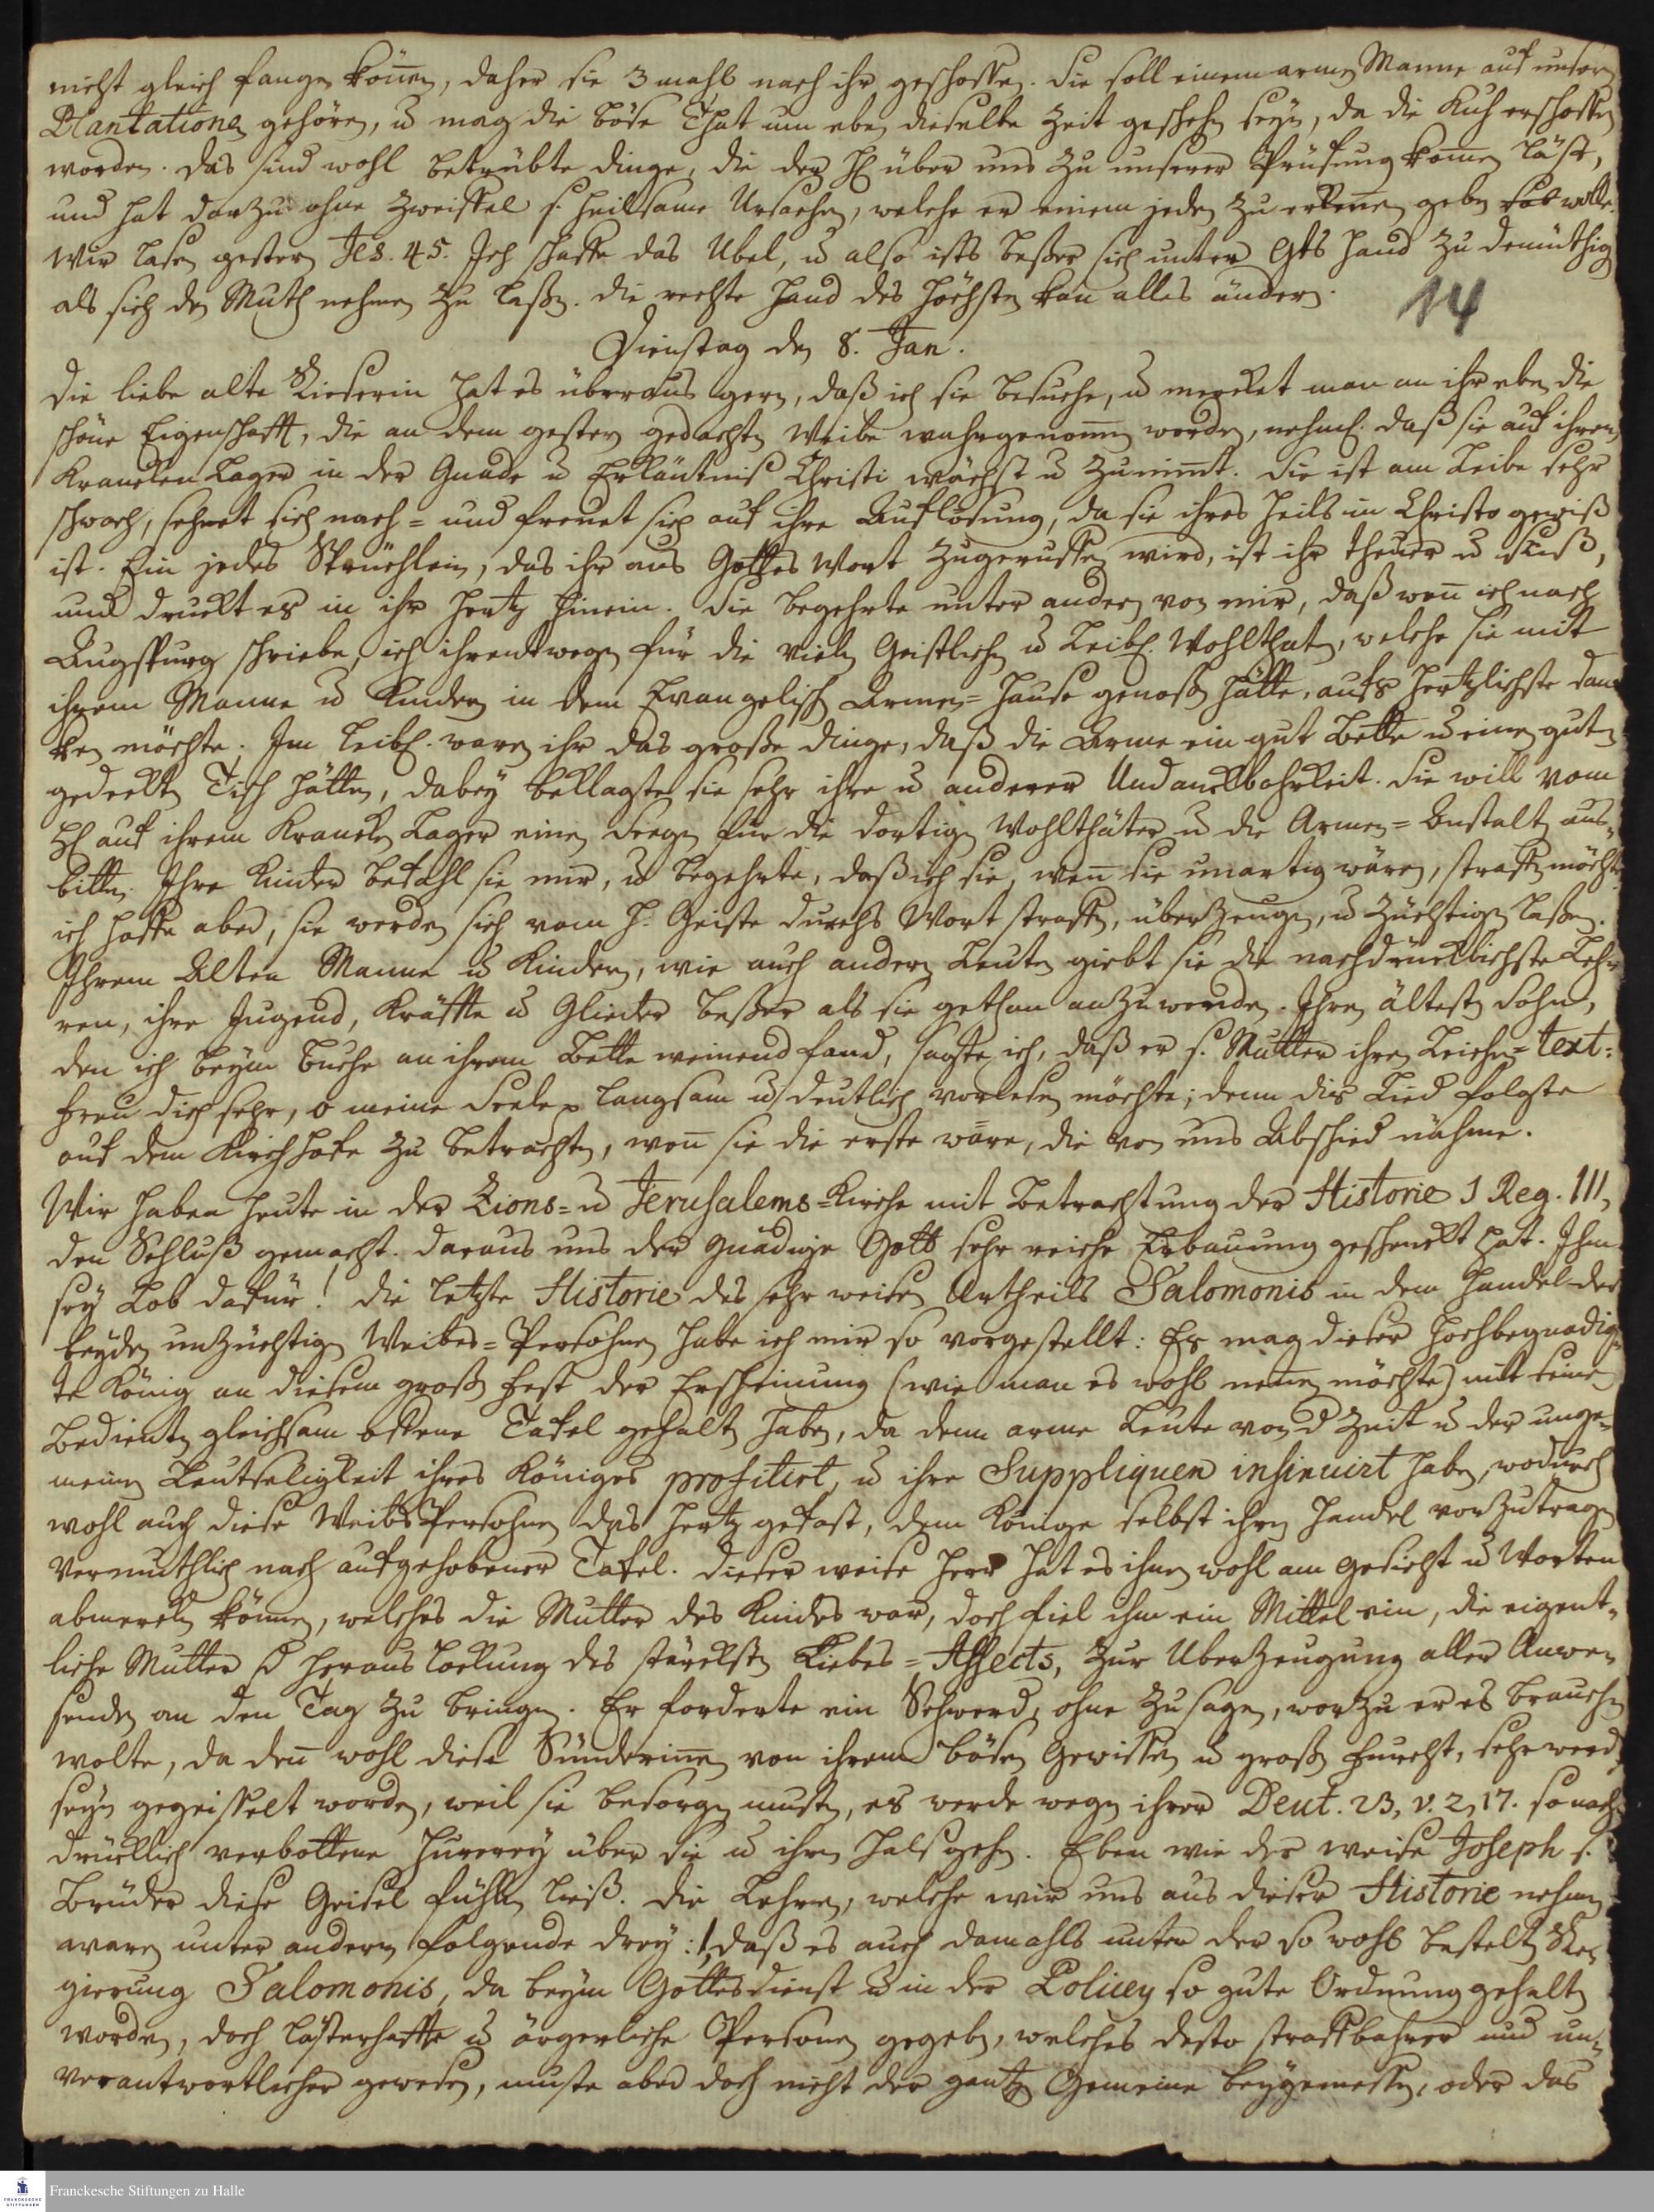 nicht gleich fangen können, daher sie 3 mahl nach ihr geschossen. Sie soll einem armen Manne auf unsern
Plantationen gehören, u mag die böse That um eben dieselbe Zeit geschehen seyn, da die Kuh erschossen
worden. Das sind wohl betrübte Dinge, die der H über uns zu unserer Prüfung kommen läst,
und hat darzu ohne Zweiffel s. heilsame Ursachen, welche er einem jeden zu erkennen geben wolle.
Wir lasen gestern Jes. 45. Ich schaffe das Übel, u also ists beßer sich unter Gts Hand zu demüthigen
als sich den Muth nehmen zu laßen. Die rechte Hand des Höchsten kan alles ändern.
14
Dienstag den 8. Jan.
Die liebe alte Kieserin hat es überaus gern, daß ich sie besuche, u mercket man an ihr eben die
schöne Eigenschafft, die an dem gestern gedachten Weibe wahrgenommen worden, nehml. daß sie auf ihrem
Krancken Lager in der Gnade u Erkäntniß Christi wächst u zunimmt. Sie ist am Leibe sehr
schwach, sehnet sich nach= und freuet sich auf ihre Auflösung, da sie ihres Heils in Christo gewiß
ist. Ein jedes Sprüchlein, das ihr aus Gottes Wort zugeruffen wird, ist ihr theuer u süß,
und druckt es in ihr Hertz hinein. Sie begehrte unter andern von mir, daß wenn ich nach
Augspurg schriebe, ich ihrentwegen für die vielen Geistlichen u Leibl. Wohlthaten, welche sie mit
ihrem Manne u Kindern in dem Evangelisch Armen=Hause genoßen hätte, aufs hertzlichste dan
ken möchte. Im Leibl. waren ihr das große Dinge, daß die Arme ein gut Bette u einen guten
gedeckten Tisch hätten, dabey beklagte sie sehr ihre u anderer Undanckbahrkeit. Sie will vom
H auf ihrem Krancken Lager einen Seegen für die dortigen Wohlthäter u die Armen=Anstalt aus=
bitten. Ihre Kinder befahl sie mir, u begehrte, daß ich sie, wenn sie unartig wären, straffen möchte,
ich hoffe aber, sie werden sich vom H. Geiste durchs Wort straffen, überzeugen, u züchtigen laßen.
Ihrem Alten Manne u Kindern, wie auch andern Leuten giebt sie die nachdrücklichste Leh
ren, ihre Jugend, Kräffte u Glieder beßer als sie gethan anzuwenden. Ihren ältesten Sohn,
den ich beym Buche an ihrem Bette weinend fand, sagte ich, daß er s. Mutter ihren Leichen=text:
Freu dich sehr, o meine Seele langsam u deutlich vorlesen möchte; denn dis Lied folgte
auf dem Kirchhofe zu betrachten, wenn sie die erste wäre, die von uns Abschied nähme.
Wir haben heute in der Zions= u Jerusalems=Kirche mit Betrachtung der Historie 1 Reg. III,
den Schluß gemacht. Daraus uns der gnädige Gott sehr reiche Erbauung geschenckt hat. Ihm
sey Lob dafür! Die letzte Historie des sehr weisen Urtheils Salomonis in dem Handel der
beyden unzüchtigen Weibes=Persohnen habe ich mir so vorgestellt: Es mag dieser hochbegnadig=
te König an diesem großen Fest der Erscheinung (wie man es wohl nennen möchte) mit seinen
Bedienten gleichsam offene Tafel gehalten haben, da denn arme Leute von d Zeit u der unge=
meinen Leutseligkeit ihres Königes profitirt, u ihre Suppliquen insinuirt haben, wodurch
wohl auch diese Weibs Persohnen das Hertz gefast, dem Könige selbst ihren Handel vorzutragen
vermuthlich nach aufgehobener Tafel. Dieser weise Herr hat es ihnen wohl am Gesicht u Worten
abmercken können, welches die Mutter des Kindes war, doch fiel ihm ein Mittel ein, die eigent=
liche Mutter d Herauslockung des stärcksten Liebes=Affects, zur Uberzeugung aller Anwe=
senden an den Tag zu bringen. Er forderte ein Schwerd, ohne zu sagen, worzu er es brauchen
wolte, da denn wohl diese Sünderinnen von ihrem bösen Gewissen u großen Furcht, sehr werden
seyn gegeisselt worden, weil sie besorgen musten, es werde wegen ihrer Deut. 23, v. 2, 17. so nach
drücklich verbottene Hurerey über sie u ihren Hals gehen. Eben wie der weise Joseph s.
Brüder diese Geisel fühlen ließ. Die Lehren, welche wir uns aus dieser Historie nehmen
waren unter andern folgende drey: 1, daß es auch damahls unter der so wohl bestelten Re=
gierung Salomonis, da beym Gottesdienst u in der Policey so gute Ordnung gehalten
worden, doch lasterhaffte u ärgerliche Personen gegeben, welches desto straffbahrer und un=
verantwortlicher gewesen, muste aber doch nicht der gantzen Gemeine beygemessen, oder das
Franckesche Stiftungen zu Halle